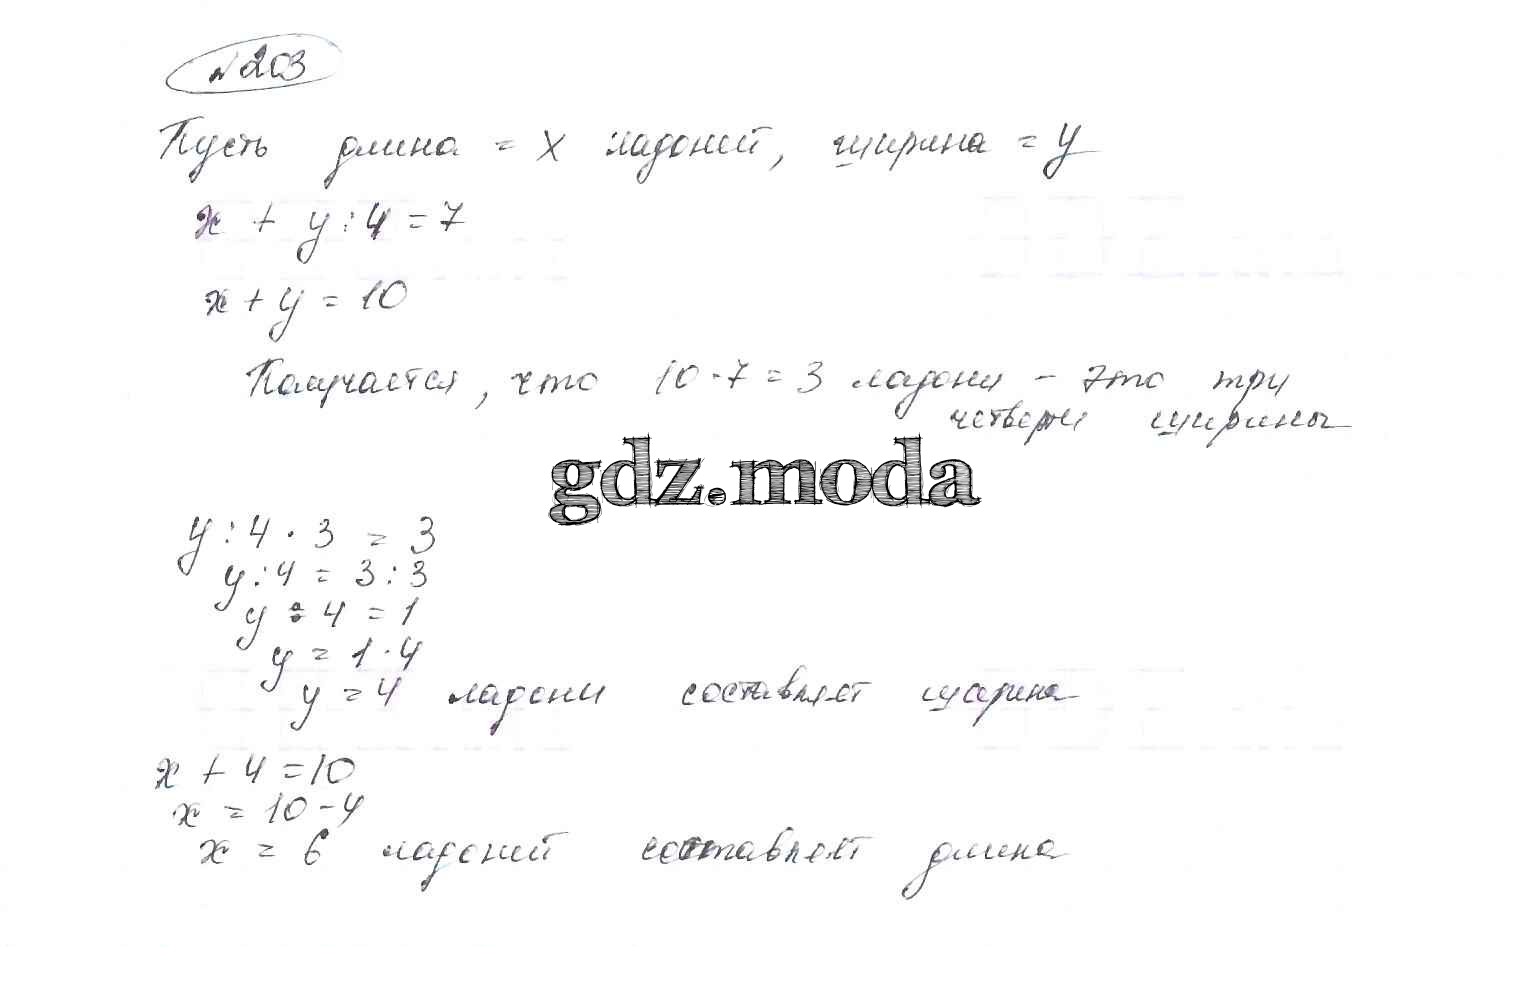 №203
Пусть длина = x ладоней, ширина = y
x + y : 4 = 7
x + y = 10
Получается, что 10 - 7 = 3 ладони - это три
четверти ширины
gdz.moda
y : 4 · 3 = 3
y : 4 = 3 : 3
y : 4 = 1
y = 1 · 4
y = 4 ладони составляет ширина
x + 4 = 10
x = 10 - 4
x = 6 ладоней составляет длина